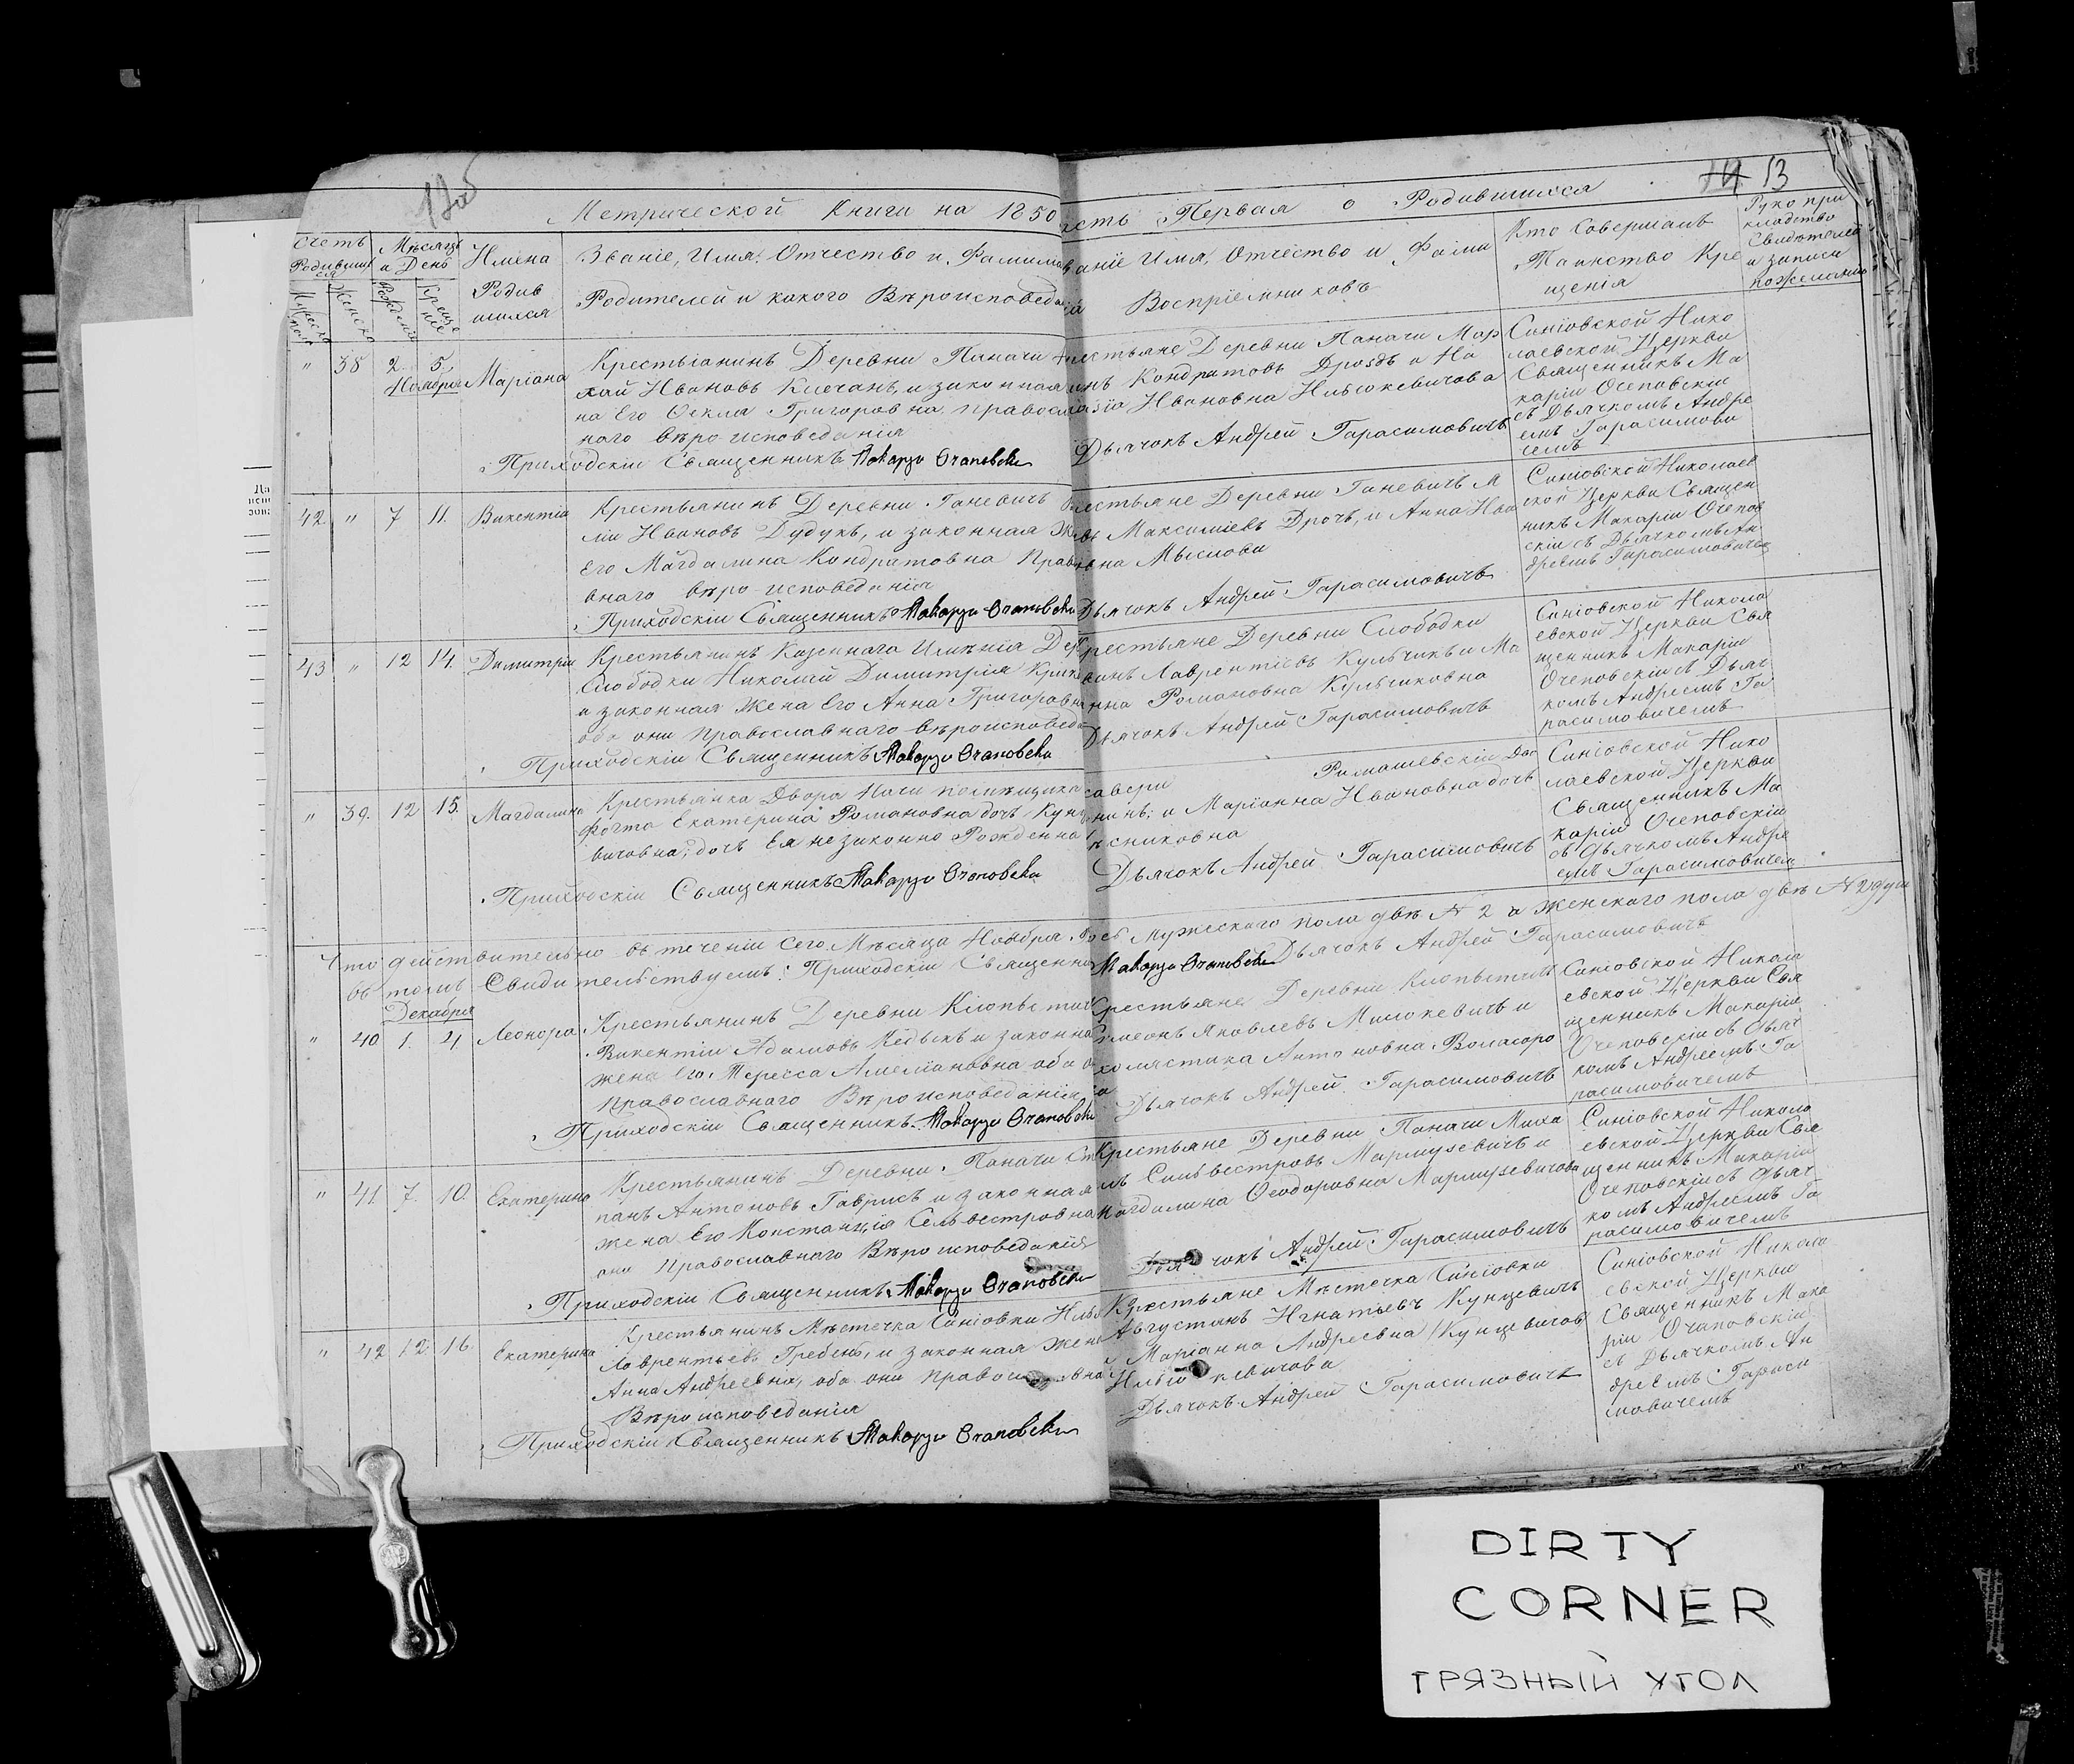 12об
14 13
Метрической Книги на 1850
асть Первая о Родившихся
Счетъ Родившихся
Мѣсяцъ и День
Имена Родив шихся
Званіе, Имя, Отчество и Фамилія
Родителей и какого Вѣроисповеда
аніе Имя, Отчество и Фами
Воспріемниковъ
Кто Совершалъ
Таинство Кре
щенія
Руко при
кладство
Свидетелей
и записи
по желанію
Мужеска пола
Женска
Рожденія
Креще нія
" 38 2. 5. Маріана
Ноября
Крестьіанинъ Деревни Паначи
хай Ивановъ Клечанъ, и законная
на Его Оекла Григоровна Православ
наго вѣроисповеданія
Приходскіи Священникъ Макарій Очаповскій
естьяне Деревни Паначи Мар
инъ Кондратовъ Дроздъ и На
Ивановна Ильюкевичова
Дьячокъ Андрей Гарасимовичъ
Синіовской Нико
лаевской Церкви
Священникъ Ма
каріи Очеповскіи
съ Дьячкомъ Андре
емъ Гарасимови
чемъ
42. " 7 11. Викентіи
Крестьянинъ Деревни Ганевичъ
ліи Ивановъ Дудукъ, и законная Ж
Его Магдалина Кондратовна Прав
внаго вѣроисповеданія
Приходскіи Священникъ Макарій Очаповскій
естьяне Деревни Ганевичъ
Максиміевъ Дрочъ, и Анна Ива
вна Мыслови
Дьячокъ Андрей Гарасимовичъ
Синіовской Николаев
ской Церкви Священ
никъ Макаріи Очепов
скіи съ Дьячкомъ Ан
дреемъ Гарасимовичем
43 " 12 14. Димитріи
Крестьянинъ Казеннаго Имѣнія Дер
Слободки Николай Димитрія
и законная Жена Его Анна Григоровна
оба они Православнаго вѣроисповеда
Приходскіи Священникъ Макарій Очаповскій
рестьяне Деревни Слободки
Лаврентіевъ Кульчикъ и Ма
нна Романовна Кульчиковна
Дьячокъ Андрей Гарасимовичъ
Синіовской Никола
евской Церкви Свя
щенникъ Макаріи
Очеповскіи съ Дьяч
комъ Андреемъ Га
расимовичемъ
" 39. 12 15. Магдалина
Крестьянка Двора Начи помѣщика
Фогта Екатерина Романовна дочь Кун
вичовна; дочь Ея незаконно Рожденна
Приходскіи Священникъ Макарій Очаповскій
савери Ромашевскіи
нинъ; и Маріанна Ивановна дочь
сниковна
Дьячокъ Андрей Гарасимовичъ
Синіовской Нико
лаевской Церкви
Священникъ Ма
каріи Очеповскіи
съ Дьячкомъ Андре
емъ Гарасимовичем
Что действительно въ теченіи сего Мѣсяца Ноября
Мужескаго пола двѣ № 2 а Женскаго пола двѣ № 2 души
въ томъ Свидительствуемъ: Приходскіи Священни
Макарій Очаповскій Дьячокъ Андрей Гарасимовичъ
Декабря
" 40 1. 4 Леонора
Крестьянинъ Деревни
Викентіи Адамовъ и законна
жена Его Тересса оба о
Православнаго Вѣроисповеданія
Приходскіи Священникъ Макарій Очаповскій
Крестьяне Деревни
Симеонъ Яковлевъ Милокевичъ и
Антоновна
Дьячокъ Андрей Гарасимовичъ
Синіовской Никола
евской Церкви Свя
щенникъ Макаріи
Очеповскіи съ Дьяч
комъ Андреемъ Га
расимовичемъ
" 41. 7. 10. Екатерина
Крестьянинъ Деревни Паначи Сте
панъ Антоновъ Гаврисъ и законная
жена Его Констанція Сельвестровна
они Православнаго Вѣроисповеданія
Приходскіи Священникъ Макарій Очаповскій
Крестьяне Деревни Паначи Миха
лъ Сильвестровъ Мармузевичъ и
Магдалина Ѳеодоровна Мармузевичова
Дьячокъ Андрей Гарасимовичъ
Синіовской Никола
евской Церкви Свя
щенникъ Макаріи
Очеповскіи съ Дьяч
комъ Андреемъ Га
расимовичемъ
" 42 12 16. Екатерина
Крестьянинъ Мѣстечка Синіовки
Лаврентьевъ Гребень, и законная Жена
Анна Андреевна, оба они Православна
Вѣроисповеданія
Приходскіи Священникъ Макарій Очаповскій
Крестьяне Мѣстечка Синіовки
Августинъ Игнатьевъ Кунцевичъ
и Маріанна Андреевна Кунцевичов
Дьячокъ Андрей Гарасимовичъ
Синіовской Никола
евской Церкви
Священникъ Мака
ріи Очаповскіи
съ Дьячкомъ Ан
дреемъ Гараси
мовичемъ
DIRTY
CORNER
ГРЯЗНЫЙ УГОЛ